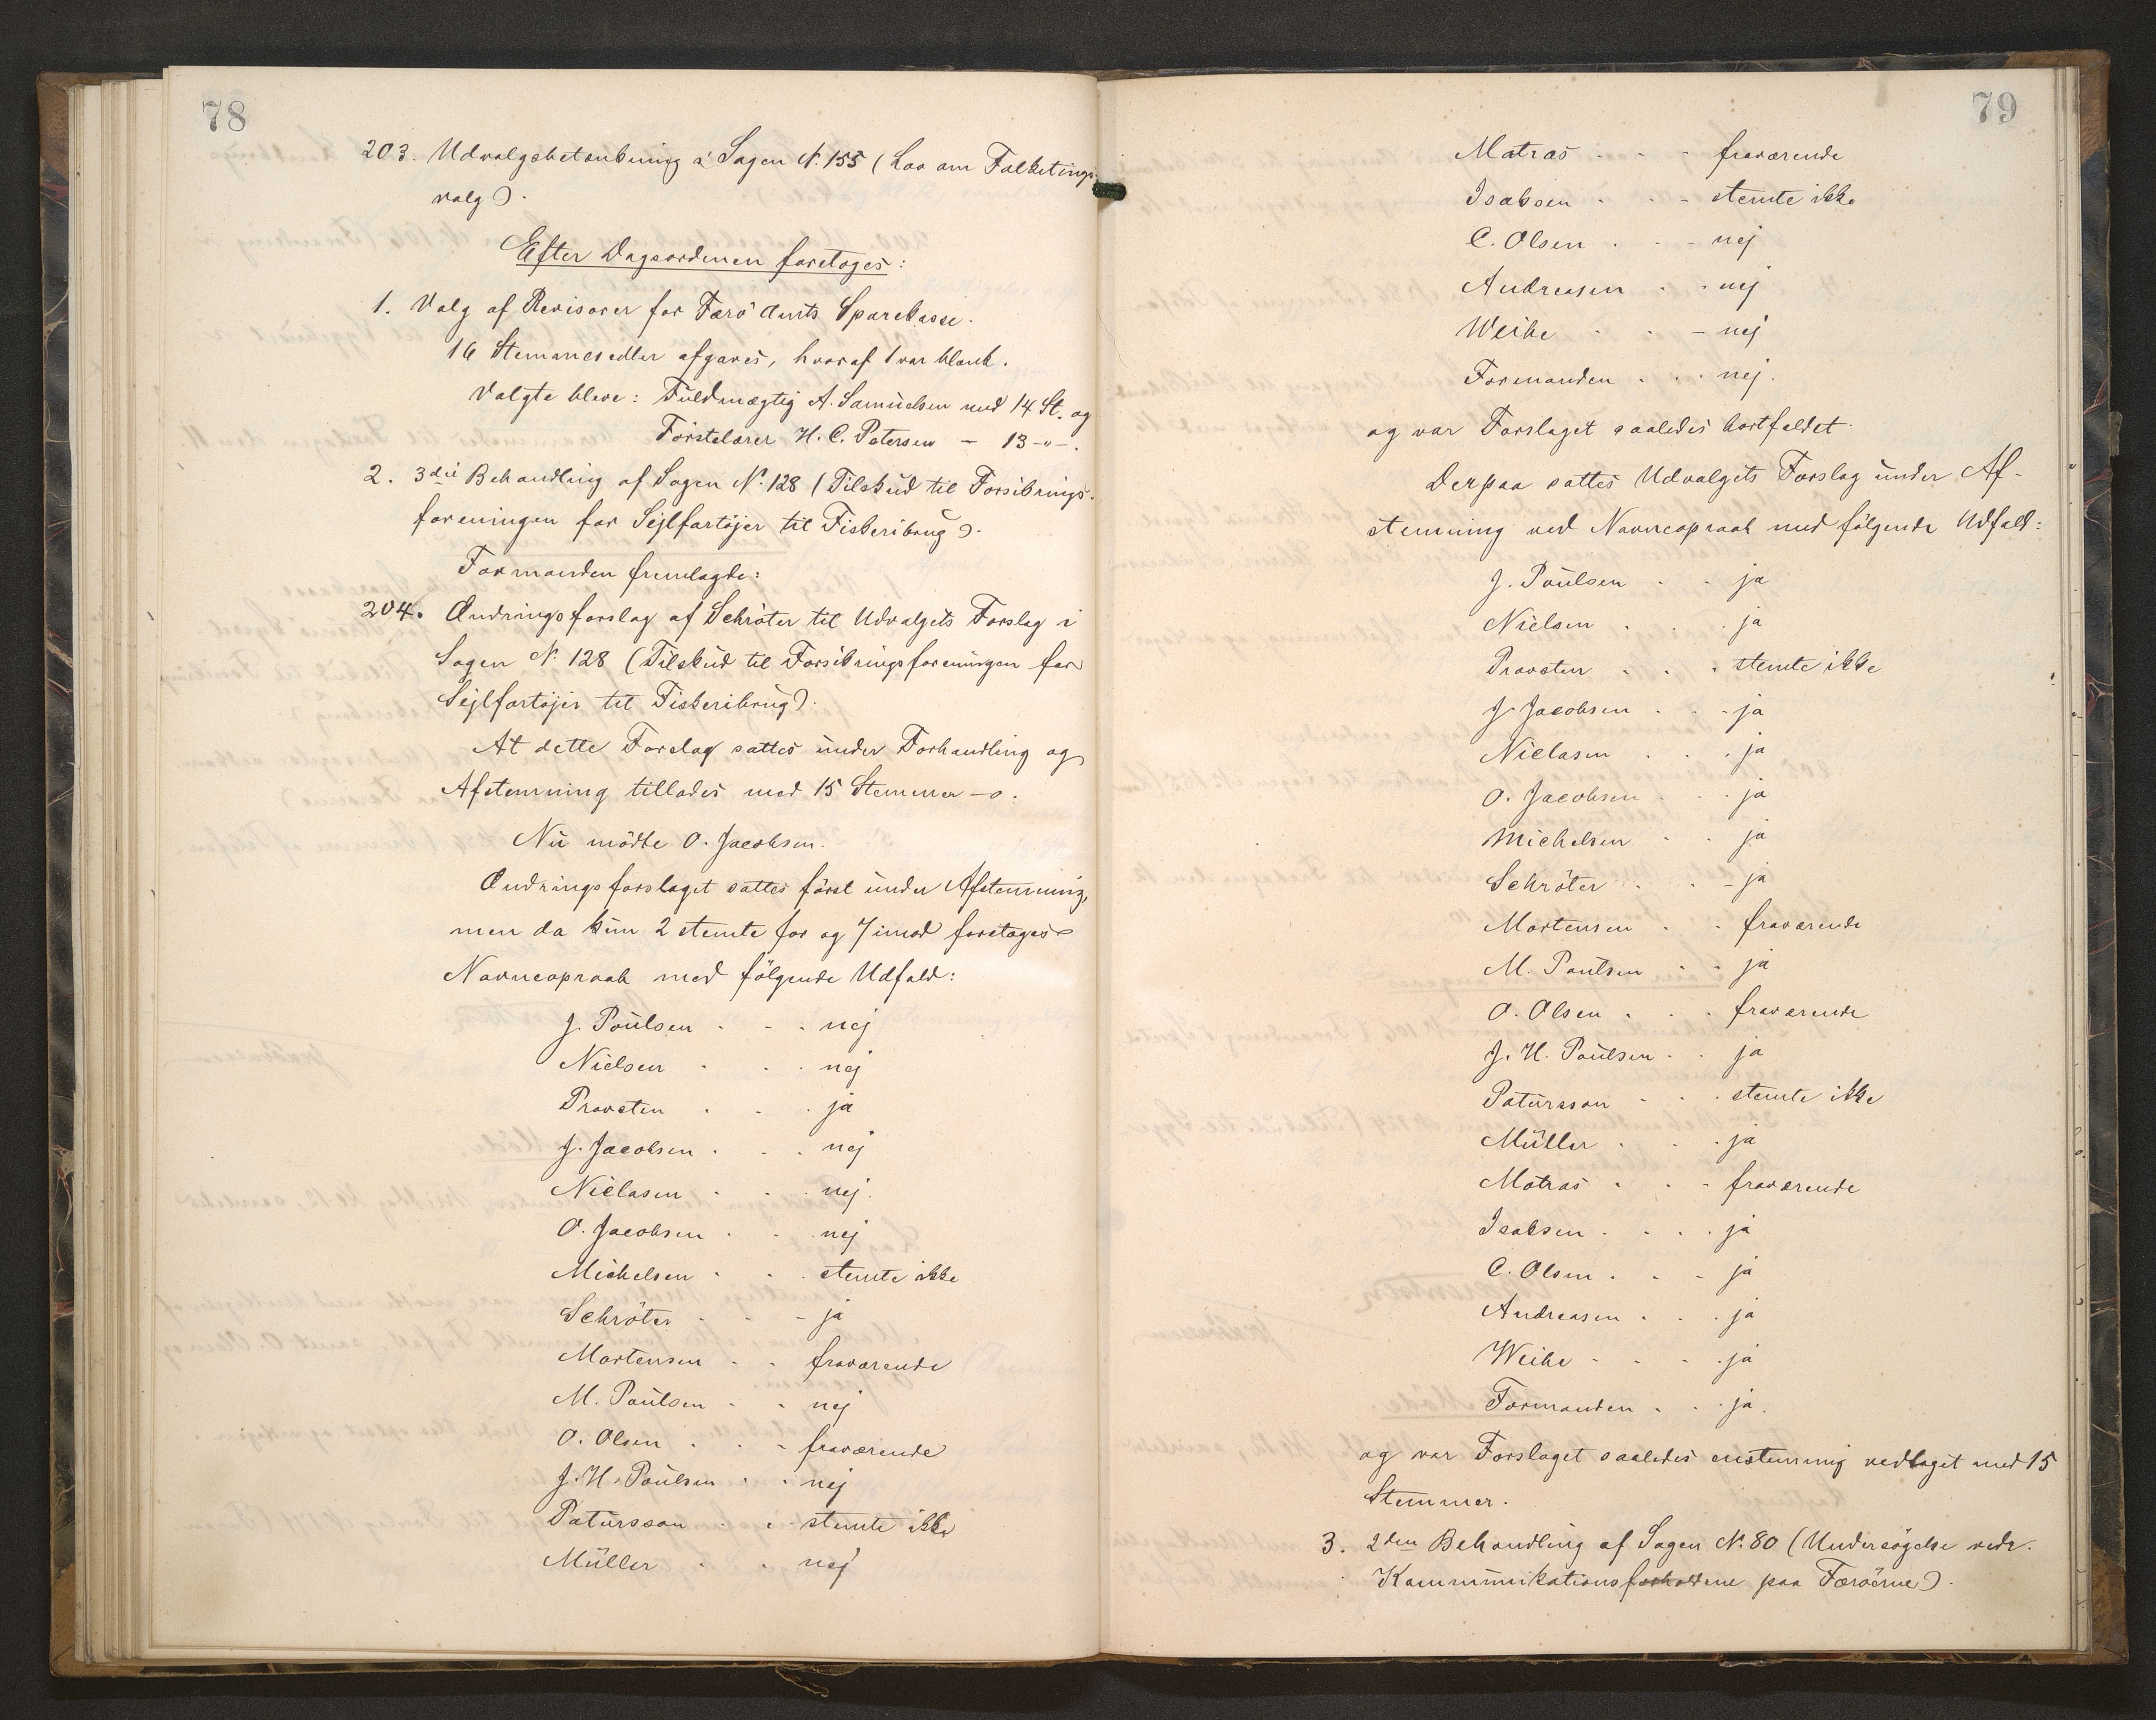 78
203. Udvalgsbetænkning i Sagen N. 155 (Lov om Folketings-
valg).
Efter Dagsordenen foretoges:
1. Valg af Revisorer for Færö Amts Sparekasse.
16 Stemmesedler afgaves, hvoraf 1 var blank.
Valgte bleve: Fuldmægtig A. Samuelsen med 14 St. og
Förstelærer H. C. Petersen — 13 -"-.
2. 3die Behandling af Sagen N. 128 (Tilskud til Forsikrings-
foreningen for Sejlfartöjer til Fiskeribrug).
Formanden fremlagde:
204. Ændringsforslag af Schröter til Udvalgets Forslag i
Sagen N. 128 (Tilskud til Forsikringsforeningen for
Sejlfartöjer til Fiskeribrug).
At dette Forslag sattes under Forhandling og
Afstemning tillodes med 15 Stemmer -o.
Nu mödte O. Jacobsen.
Ændringsforslaget sattes först under Afstemning,
men da kun 2 stemte for og 7 imod foretoges
Navneopraab med fölgende Udfald:
J. Poulsen . - . nej
Nielsen . . . nej
Provsten . . . ja
J. Jacobsen . . . nej
Niclasen . . . nej.
O. Jacobsen . . . nej
Michelsen . . . stemte ikke
Schröter . - - ja
Mortensen . . fraværende
M. Poulsen - . nej
O. Olsen . . - fraværende
J. H. Poulsen . . nej
Patursson . . . stemte ikke
Müller . . nej
79
Matras - - - fraværende
Isaksen . . - stemte ikke
C. Olsen . - - nej
Andreasen . . nej
Weihe . . - nej
Formanden . . . nej.
og var Forslaget saaledes bortfaldet.
Derpaa sattes Udvalgets Forslag under Af-
stemning ved Navneopraab med fölgende Udfald:
J. Poulsen . . ja
Nielsen . . . ja
Provsten . . . stemte ikke
J. Jacobsen . . . ja
Niclasen . . . ja
O. Jacobsen . . ja
Michelsen . . ja
Schröter . . - ja
Mortensen . . fraværende
M. Poulsen . . ja
O. Olsen . . . fraværende
J. H. Poulsen . . ja
Patursson . . . stemte ikke
Müller . . . ja
Matras . . - fraværende
Isaksen . . . . ja
C. Olsen . . - ja
Andreasen . . . ja
Weihe - - - . ja
Formanden . . . ja.
og var Forslaget saaledes enstemmig vedtaget med 15
Stemmer.
3. 2den Behandling af Sagen N. 80 (Undersögelse vedr.
Kommunikationsforholdene paa Færöerne).